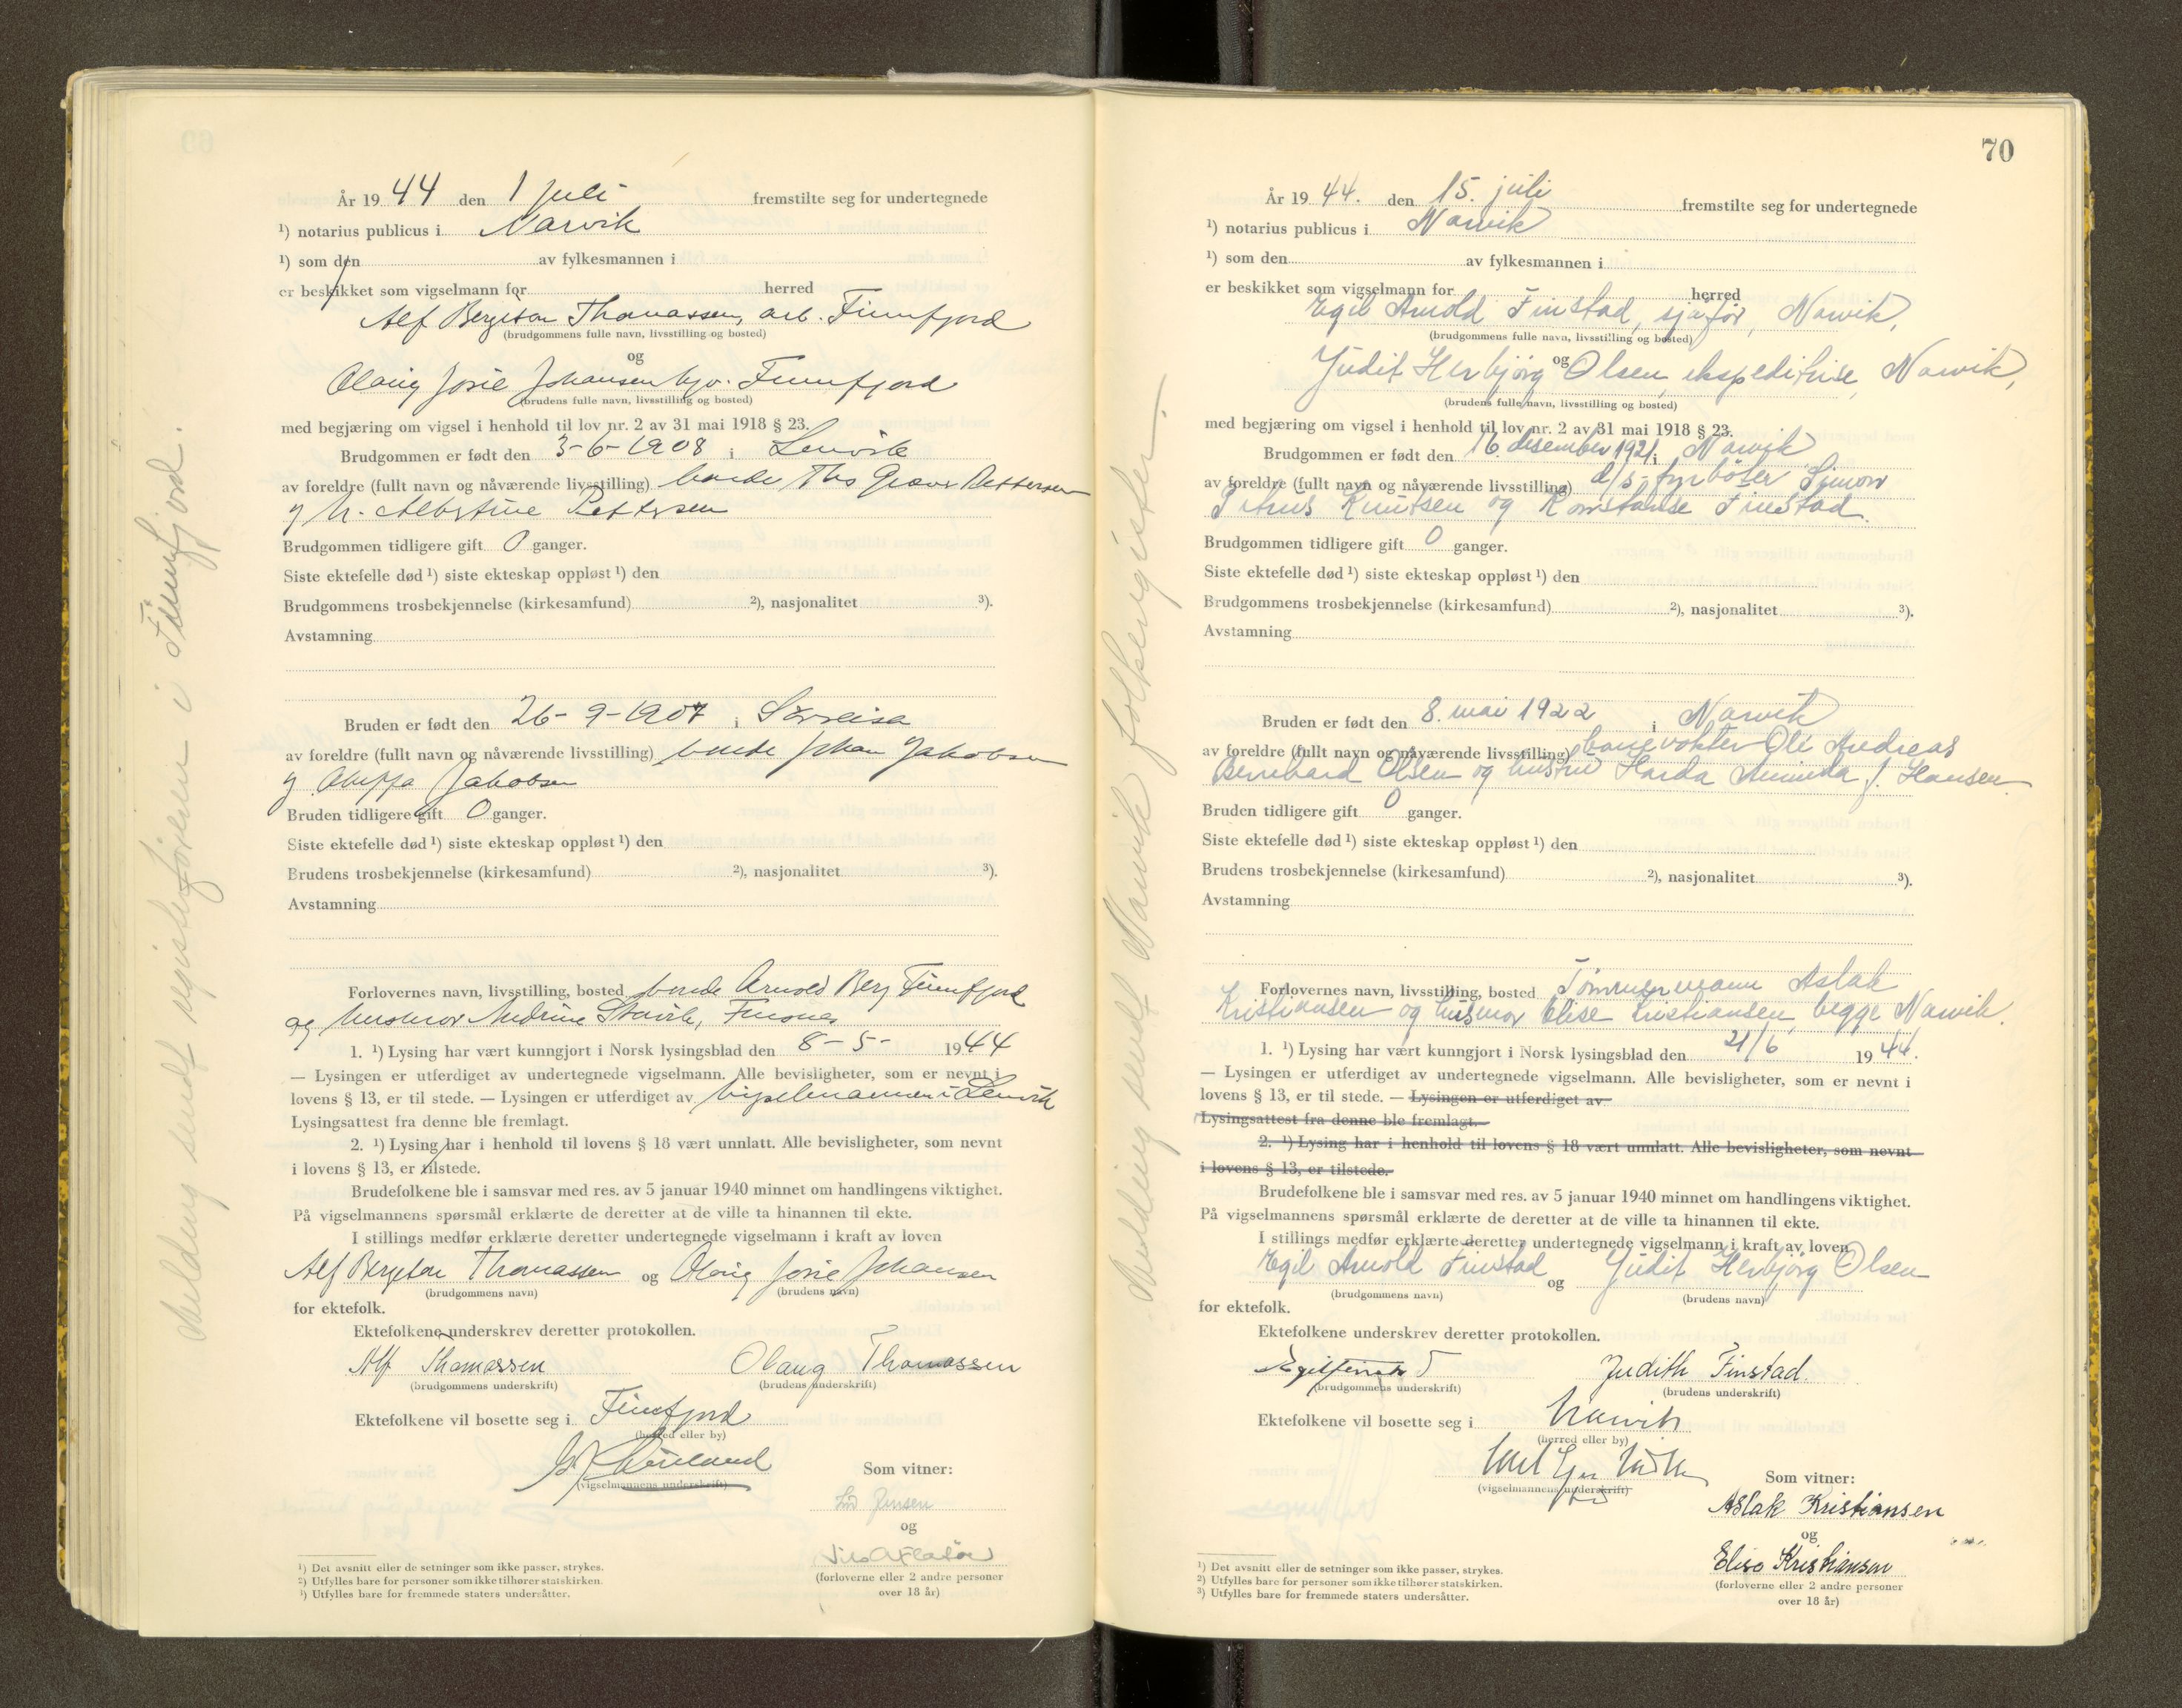 År 1944 den 1 juli fremstilte seg for undertegnede
¹) notarius publicus i Narvik
¹) som den av fylkesmannen i
er beskikket som vigselmann for herred
Alf Bergeton Thomassen, arb. Finnfjord
(brudgommens fulle navn, livsstilling og bosted)
og
Olaug Josie Johansen hjv. Finnfjord
(brudens fulle navn, livsstilling og bosted)
med begjæring om vigsel i henhold til lov nr. 2 av 31 mai 1918 § 23.
Brudgommen er født den 3-6-1908 i Lenvik
av foreldre (fullt navn og nåværende livsstilling) bonde Ths Pettersen
og h. Albertine Pettersen
Brudgommen tidligere gift 0 ganger.
Siste ektefelle død ¹) siste ekteskap oppløst ¹) den
Brudgommens trosbekjennelse (kirkesamfund) ²), nasjonalitet ³).
Avstamning
Bruden er født den 26-9-1907 i Sørreisa
av foreldre (fullt navn og nåværende livsstilling) bonde Johan Jakobsen
og Jakobsen
Bruden tidligere gift 0 ganger.
Siste ektefelle død ¹) siste ekteskap oppløst ¹) den
Brudens trosbekjennelse (kirkesamfund) ²), nasjonalitet ³).
Avstamning
Forlovernes navn, livsstilling, bosted bonde Arnold Berg Finnfjord
og husmor Andrine Stavik, Finsnes
1. ¹) Lysing har vært kunngjort i Norsk lysingsblad den 8-5- 1944
— Lysingen er utferdiget av undertegnede vigselmann. Alle bevisligheter, som er nevnt i
lovens § 13, er til stede. — Lysingen er utferdiget av vigselmannen i Lenvik
Lysingsattest fra denne ble fremlagt.
2. ¹) Lysing har i henhold til lovens § 18 vært unnlatt. Alle bevisligheter, som nevnt
i lovens § 13, er tilstede.
Brudefolkene ble i samsvar med res. av 5 januar 1940 minnet om handlingens viktighet.
På vigselmannens spørsmål erklærte de deretter at de ville ta hinannen til ekte.
I stillings medfør erklærte deretter undertegnede vigselmann i kraft av loven
Alf Bergeton Thomassen og Olaug Josie Johansen
(brudgommens navn) (brudens navn)
for ektefolk.
Ektefolkene underskrev deretter protokollen.
Alf Thomassen Olaug Thomassen
(brudgommens underskrift) (brudens underskrift)
Ektefolkene vil bosette seg i Finnfjord
(herred eller by)
(vigselmannens underskrift)
Som vitner:
Jensen
og
(forloverne eller 2 andre personer
over 18 år)
¹) Det avsnitt eller de setninger som ikke passer, strykes.
²) Utfylles bare for personer som ikke tilhører statskirken.
¹) Utfylles bare for fremmede staters undersåtter.
Melding sendt registerføreren i Finnfjord.
70
År 1944. den 15. juli fremstilte seg for undertegnede
¹) notarius publicus i Narvik
¹) som den av fylkesmannen i
er beskikket som vigselmann for herred
Egil Arnold Finstad, sjåfør, Narvik,
(brudgommens fulle navn, livsstilling og bosted)
og
Judit Herbjörg Olsen, ekspeditrise, Narvik,
(brudens fulle navn, livsstilling og bosted)
med begjæring om vigsel i henhold til lov nr. 2 av 31 mai 1918 § 23.
Brudgommen er født den 16. desember 1921 i Narvik
av foreldre (fullt navn og nåværende livsstilling) d/s. fyrböter Simon
Petrus Knutsen og Konstanse Finstad.
Brudgommen tidligere gift 0 ganger.
Siste ektefelle død ¹) siste ekteskap oppløst ¹) den
Brudgommens trosbekjennelse (kirkesamfund) ²), nasjonalitet ³).
Avstamning
Bruden er født den 8. mai 1922 i Narvik
av foreldre (fullt navn og nåværende livsstilling) banevokter Ole Andreas
Bernhard Olsen og hustru Harda Aminda J. Hansen.
Bruden tidligere gift 0 ganger.
Siste ektefelle død ¹) siste ekteskap oppløst ¹) den
Brudens trosbekjennelse (kirkesamfund) ²), nasjonalitet ³).
Avstamning
Forlovernes navn, livsstilling, bosted Tömmermann Aslak
Kristiansen og husmor Elise Kristiansen, begge Narvik.
1. ¹) Lysing har vært kunngjort i Norsk lysingsblad den 21/6 1944.
— Lysingen er utferdiget av undertegnede vigselmann. Alle bevisligheter, som er nevnt i
lovens § 13, er til stede. — Lysingen er utferdiget av
Lysingsattest fra denne ble fremlagt.
2. ¹) Lysing har i henhold til lovens § 18 vært unnlatt. Alle bevisligheter, som nevnt
i lovens § 13, er tilstede.
Brudefolkene ble i samsvar med res. av 5 januar 1940 minnet om handlingens viktighet.
På vigselmannens spørsmål erklærte de deretter at de ville ta hinannen til ekte.
I stillings medfør erklærte deretter undertegnede vigselmann i kraft av loven
Egil Arnold Finstad og Judit Herbjörg Olsen
(brudgommens navn) (brudens navn)
for ektefolk.
Ektefolkene underskrev deretter protokollen.
Judith Finstad.
(brudgommens underskrift) (brudens underskrift)
Ektefolkene vil bosette seg i Narvik
(herred eller by)
(vigselmannens underskrift)
Som vitner:
Aslak Kristiansen
og
Elise Kristiansen
(forloverne eller 2 andre personer
over 18 år)
¹) Det avsnitt eller de setninger som ikke passer, strykes.
²) Utfylles bare for personer som ikke tilhører statskirken.
³) Utfylles bare for fremmede staters undersåtter.
Melding sendt Narvik folkeregister.